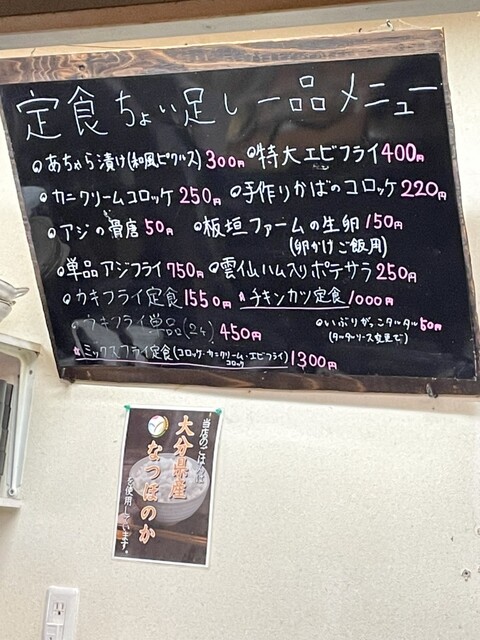 定食ちょい足し一品メニュー
◎あちゃら漬け(和風ピクルス)300円 ◎特大エビフライ400円
◎カニクリームコロッケ250円 ◎手作りかぼのコロッケ220円
◎アジの骨唐50円 ◎板垣ファームの生卵150円
(卵かけご飯用)
◎単品アジフライ750円 ◎雲仙ハム入りポテサラ250円
◎カキフライ定食1550円 ☆チキンカツ定食1000円
カキフライ単品(2ケ)450円 ◎いぶりがっこタルタル50円
(タルタルソース変更で)
☆ミックスフライ定食(コロッケ・カニクリーム・エビフライ)1300円
コロッケ
当店のごはんは
大分県産
なつほのか
を使用しています。